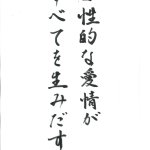 性的な愛情が
べてを生みだす